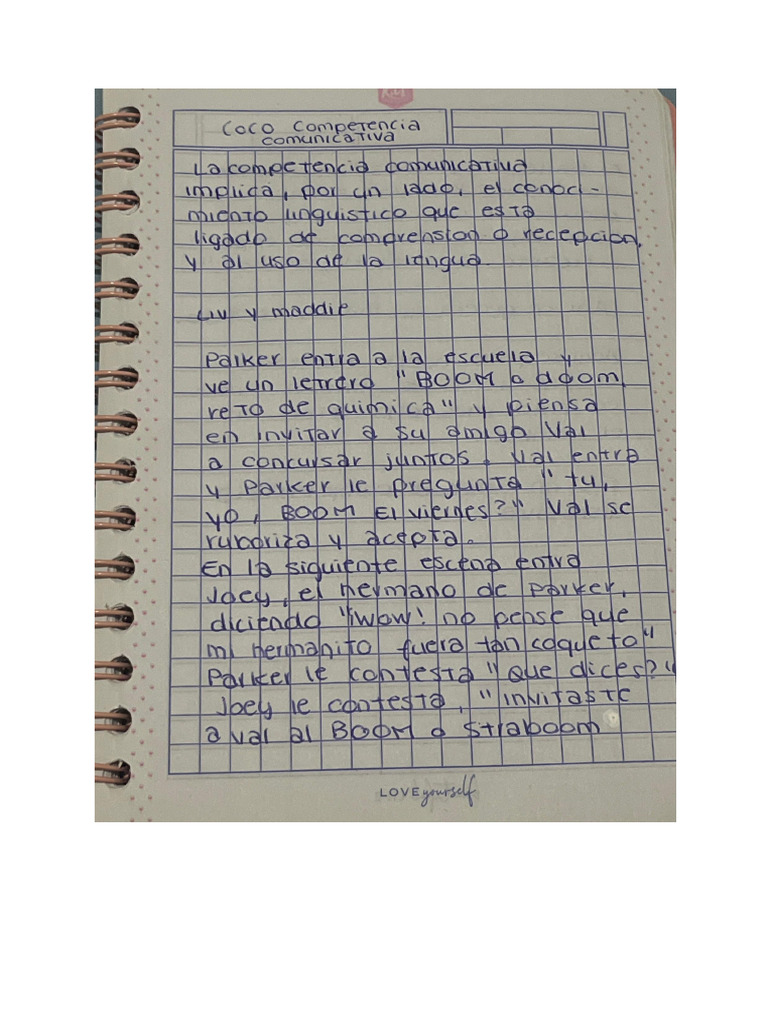 KIUT
COCO competencia
comunicativa
La competencia comunicativa
implica, por un lado, el conoci-
miento linguistico que esta
ligado de comprension o recepcion,
y al uso de la lengua
Liv y maddie
Parker entra a la escuela y
ve un letrero "BOOM a doom
reto de quimica" y piensa
en invitar a su amiga Val
a concursar juntos. Val entra
y Parker le pregunta "tu,
yo, BOOM El viernes?" Val se
ruboriza y acepta.
En la siguiente escena entra
Joey, el hermano de Parker,
diciendo "¡wow! no pense que
mi hermanito fuera tan coqueto"
Parker le contesta "Que dices?"
Joey le contesta, "invitaste
a val al BOOM a straboom
LOVE yourself